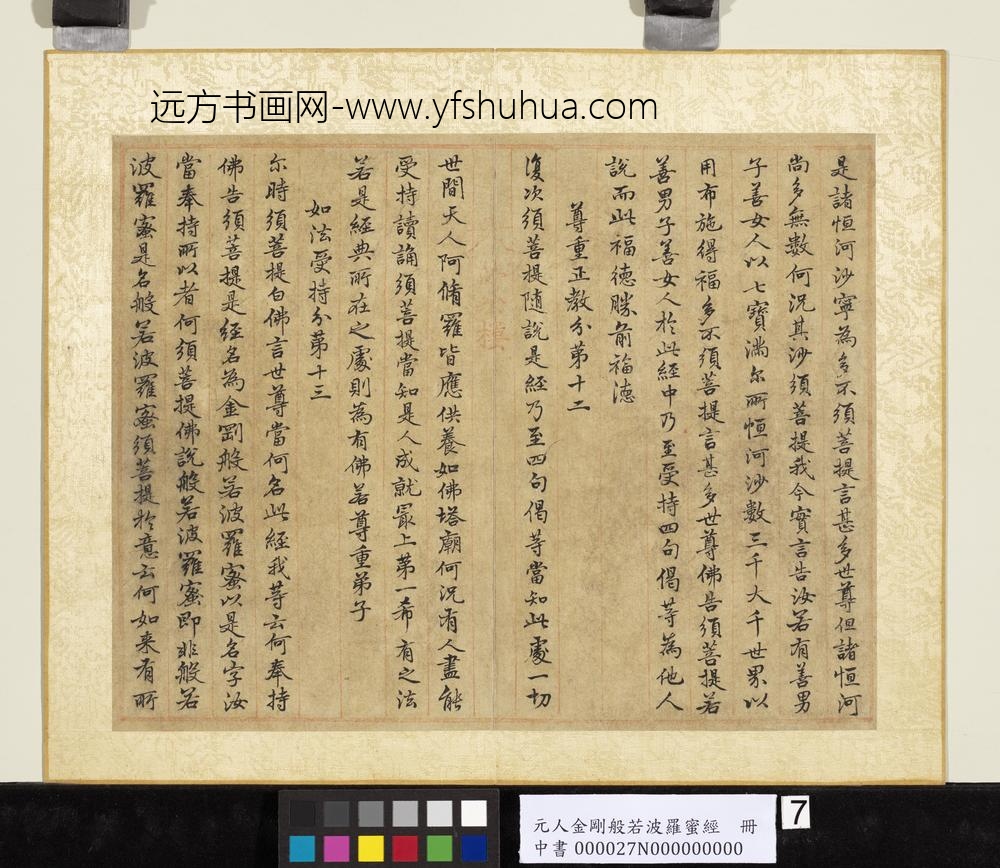 远方书画网-www.yfshuhua.com
是諸恒河沙寧為多不須菩提言甚多世尊但諸恒河
尚多無數何況其沙須菩提我今實言告汝若有善男
子善女人以七寶滿尔所恒河沙數三千大千世界以
用布施得福多不須菩提言甚多世尊佛告須菩提若
善男子善女人於此經中乃至受持四句偈等為他人
說而此福德勝前福德
尊重正教分第十二
復次須菩提随說是經乃至四句偈等當知此處一切
世間天人阿脩羅皆應供養如佛塔廟何況有人盡能
受持讀誦須菩提當知是人成就冣上第一希有之法
若是經典所在之處則為有佛若尊重弟子
如法受持分第十三
尔時須菩提白佛言世尊當何名此經我等云何奉持
佛告須菩提是經名為金剛般若波羅蜜以是名字汝
當奉持所以者何須菩提佛說般若波羅蜜即非般若
波羅蜜是名般若波羅蜜須菩提於意云何如来有所
元人金剛般若波羅蜜經 冊
中書 000027N000000000
7